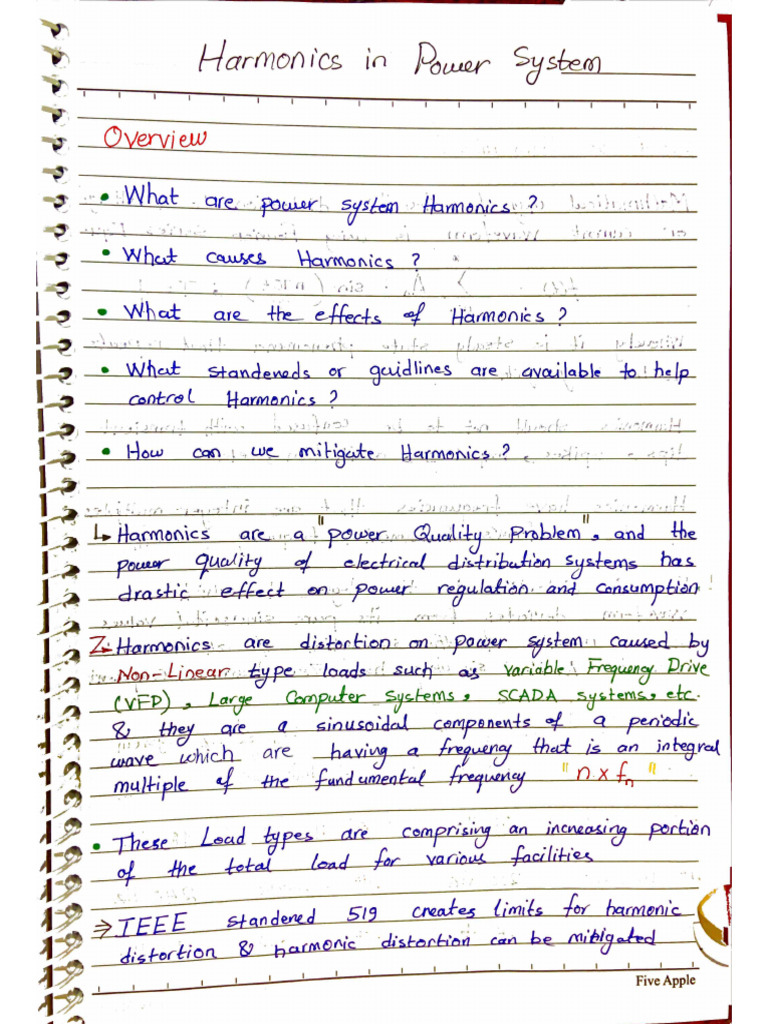 Harmonics in Power System
Overview
• What are power system Harmonics ?
• What causes Harmonics ?
• What are the effects of Harmonics ?
• What standeneds or guidlines are available to help
control Harmonics ?
• How can we mitigate Harmonics ?
↳ Harmonics are a "power Quality Problem", and the
power quality of electrical distribution systems has
drastic effect on power regulation and consumption
Harmonics are distortion on power system caused by
Non-Linear type loads such as variable Frequency Drive
(VFD), Large Computer Systems, SCADA systems, etc.
& they are a sinusoidal components of a periodic
wave which are having a frequency that is an integral
multiple of the fundumental frequency "n x fn"
• These Load types are comprising an increasing portion
of the total load for various facilities
⇒ IEEE standened 519 creates limits for harmonic
distortion & harmonic distortion can be mitigated
Five Apple